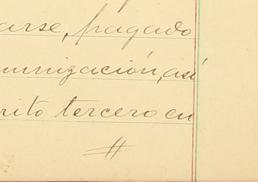 arse, pagado
emnización, así
rito tercero en
#